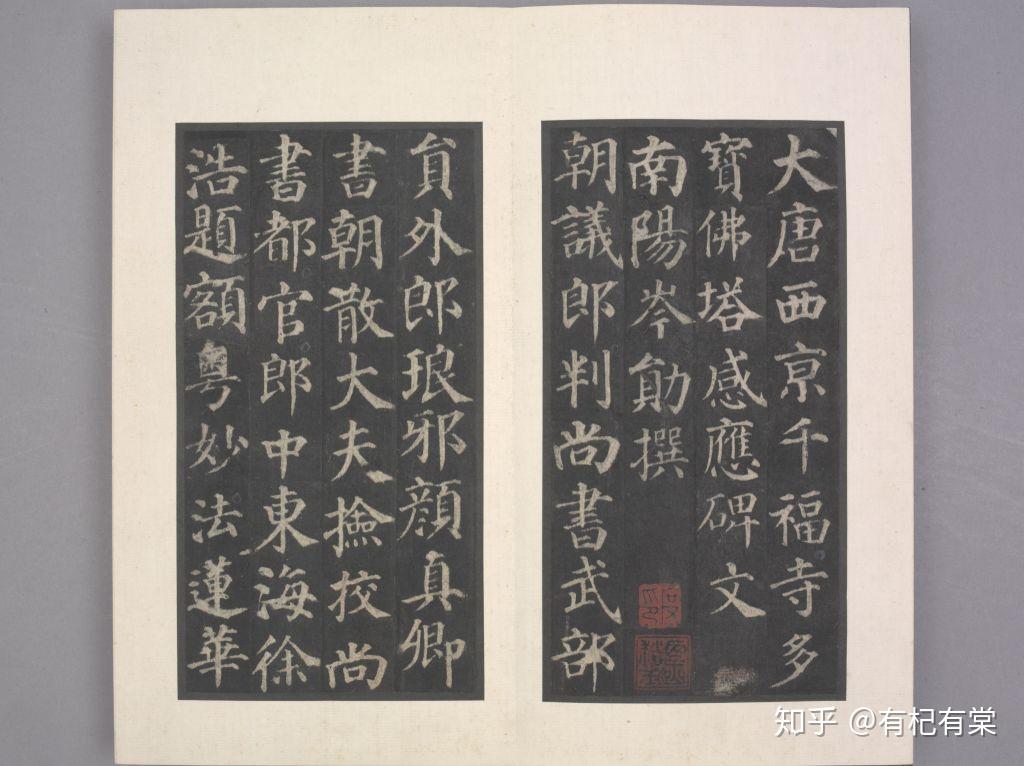 大唐西京千福寺多
寶佛塔感應碑文
南陽岑勛撰
朝議郎判尚書武部
貟外郎琅邪顔真卿
書朝散大夫撿挍尚
書都官郎中東海徐
浩題額粤妙法蓮華
知乎 @有杞有棠